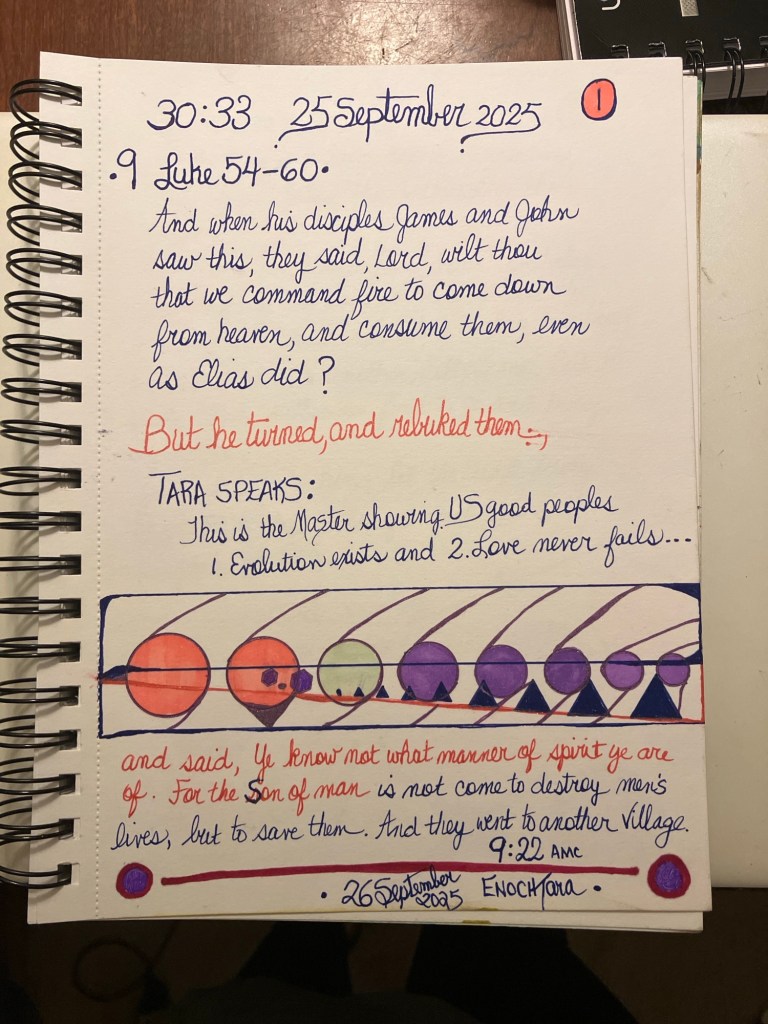 30:33 25 September 2025 1
•9 Luke 54-60•
And when his disciples James and John
saw this, they said, Lord, wilt thou
that we command fire to come down
from heaven, and consume them, even
as Elias did?
But he turned, and rebuked them.,
TARA SPEAKS:
This is the Master showing US good peoples
1. Evolution exists and 2. Love never fails...
and said, Ye know not what manner of spirit ye are
of. For the Son of man is not come to destroy men's
lives, but to save them. And they went to another village.
9:22 AMC
• 26 September 2025 ENOCHTara •